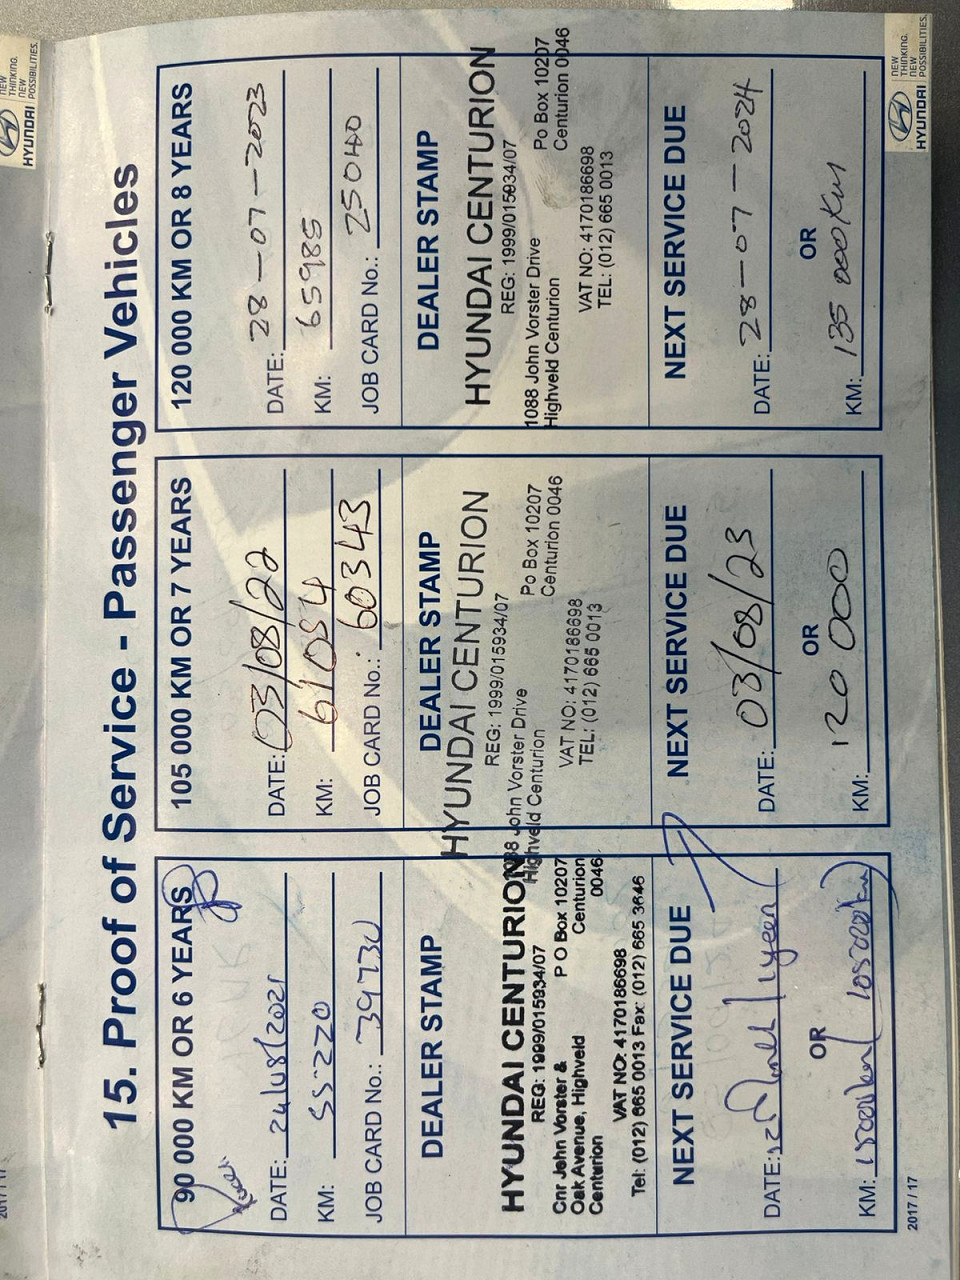 15. Proof of Service - Passenger Vehicles
90 000 KM OR 6 YEARS
DATE: 24/08/2021
KM: 55220
JOB CARD No.: 39730
DEALER STAMP
HYUNDAI CENTURION
REG: 1999/015934/07
Cnr John Vorster & P O Box 10207
Oak Avenue, Highveld Centurion
Centurion 0046
VAT NO: 4170186698
Tel: (012) 665 0013 Fax: (012) 665 3646
NEXT SERVICE DUE
DATE: 1 year
OR
KM: 15000km / 105000km
2017 / 17
105 000 KM OR 7 YEARS
DATE: 03/08/22
KM: 61054
JOB CARD No.: 60343
DEALER STAMP
HYUNDAI CENTURION
REG: 1999/015934/07
1088 John Vorster Drive Po Box 10207
Highveld Centurion Centurion 0046
VAT NO: 4170186698
TEL: (012) 665 0013
NEXT SERVICE DUE
DATE: 03/08/23
OR
KM: 120 000
120 000 KM OR 8 YEARS
DATE: 28-07-2023
KM: 65985
JOB CARD No.: 25040
DEALER STAMP
HYUNDAI CENTURION
REG: 1999/015934/07
1088 John Vorster Drive Po Box 10207
Highveld Centurion Centurion 0046
VAT NO: 4170186698
TEL: (012) 665 0013
NEXT SERVICE DUE
DATE: 28-07-2024
OR
KM: 135 000KM
HYUNDAI
NEW
THINKING.
NEW
POSSIBILITIES.
HYUNDAI
NEW
THINKING.
NEW
POSSIBILITIES.